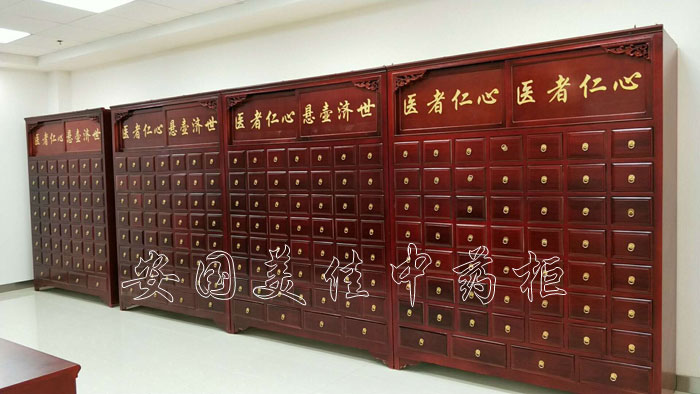 医者仁心 悬壶济世
医者仁心 悬壶济世
医者仁心 悬壶济世
医者仁心 医者仁心
安国美佳中药柜